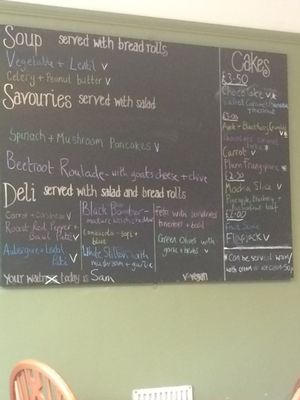 Soup served with bread rolls
Vegetable + Lentil V
Celery + Peanut butter V
Savouries served with salad
Spinach + Mushroom Pancakes V
Beetroot Roulade - with goats cheese + chive
Deli served with salad and bread rolls
Carrot +
Roast Red Pepper +
Basil Pate V
Aubergine + Lentil
Pate V
Black Bomber -
mature
Cambozola - soft +
blue
White Stilton with
mushroom + garlic
Feta with sundried
tomatoes + basil
Green Olives with
garlic + herbs V
Your waitx today is Sam
V = vegan
Cakes
£3.50
Chocolate V
Salted Caramel
£3.00
Apple + Blackberry Crumble
Carrot V
Plum Frangipane
£2.50
Mocha Slice V
Pineapple, Blueberry +
£2.00
Fruit Scone
Flapjack V
* Can be served warm/
with cream or ice cream 50p